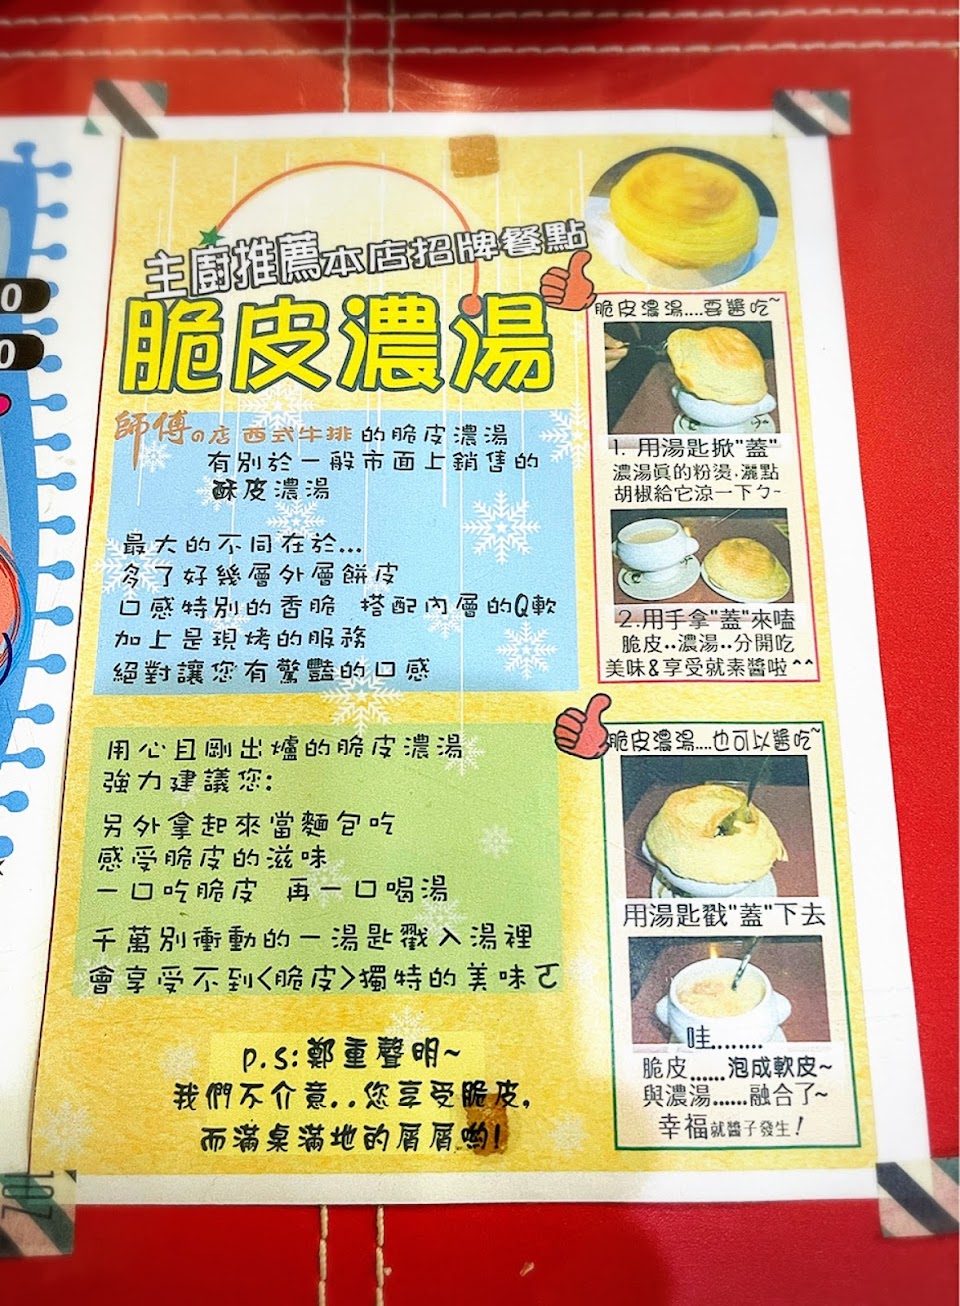 0
0
主廚推薦本店招牌餐點
脆皮濃湯
師傅の店 西式牛排 的脆皮濃湯
有別於一般市面上銷售的
酥皮濃湯
最大的不同在於...
多了好幾層外層餅皮
口感特別的香脆 搭配內層的Q軟
加上是現烤的服務
絕對讓您有驚豔的口感
用心且剛出爐的脆皮濃湯
強力建議您:
另外拿起來當麵包吃
感受脆皮的滋味
一口吃脆皮 再一口喝湯
千萬別衝動的一湯匙戳入湯裡
會享受不到<脆皮>獨特的美味ㄛ
P.S:鄭重聲明~
我們不介意..您享受脆皮,
而滿桌滿地的屑屑喲!
脆皮濃湯....要醬吃~
1. 用湯匙掀"蓋"
濃湯真的粉燙,灑點
胡椒給它涼一下ㄅ~
2.用手拿"蓋"來嗑
脆皮..濃湯..分開吃
美味&享受就素醬啦^^
脆皮濃湯....也可以醬吃~
用湯匙戳"蓋"下去
哇........
脆皮......泡成軟皮~
與濃湯......融合了~
幸福就醬子發生!